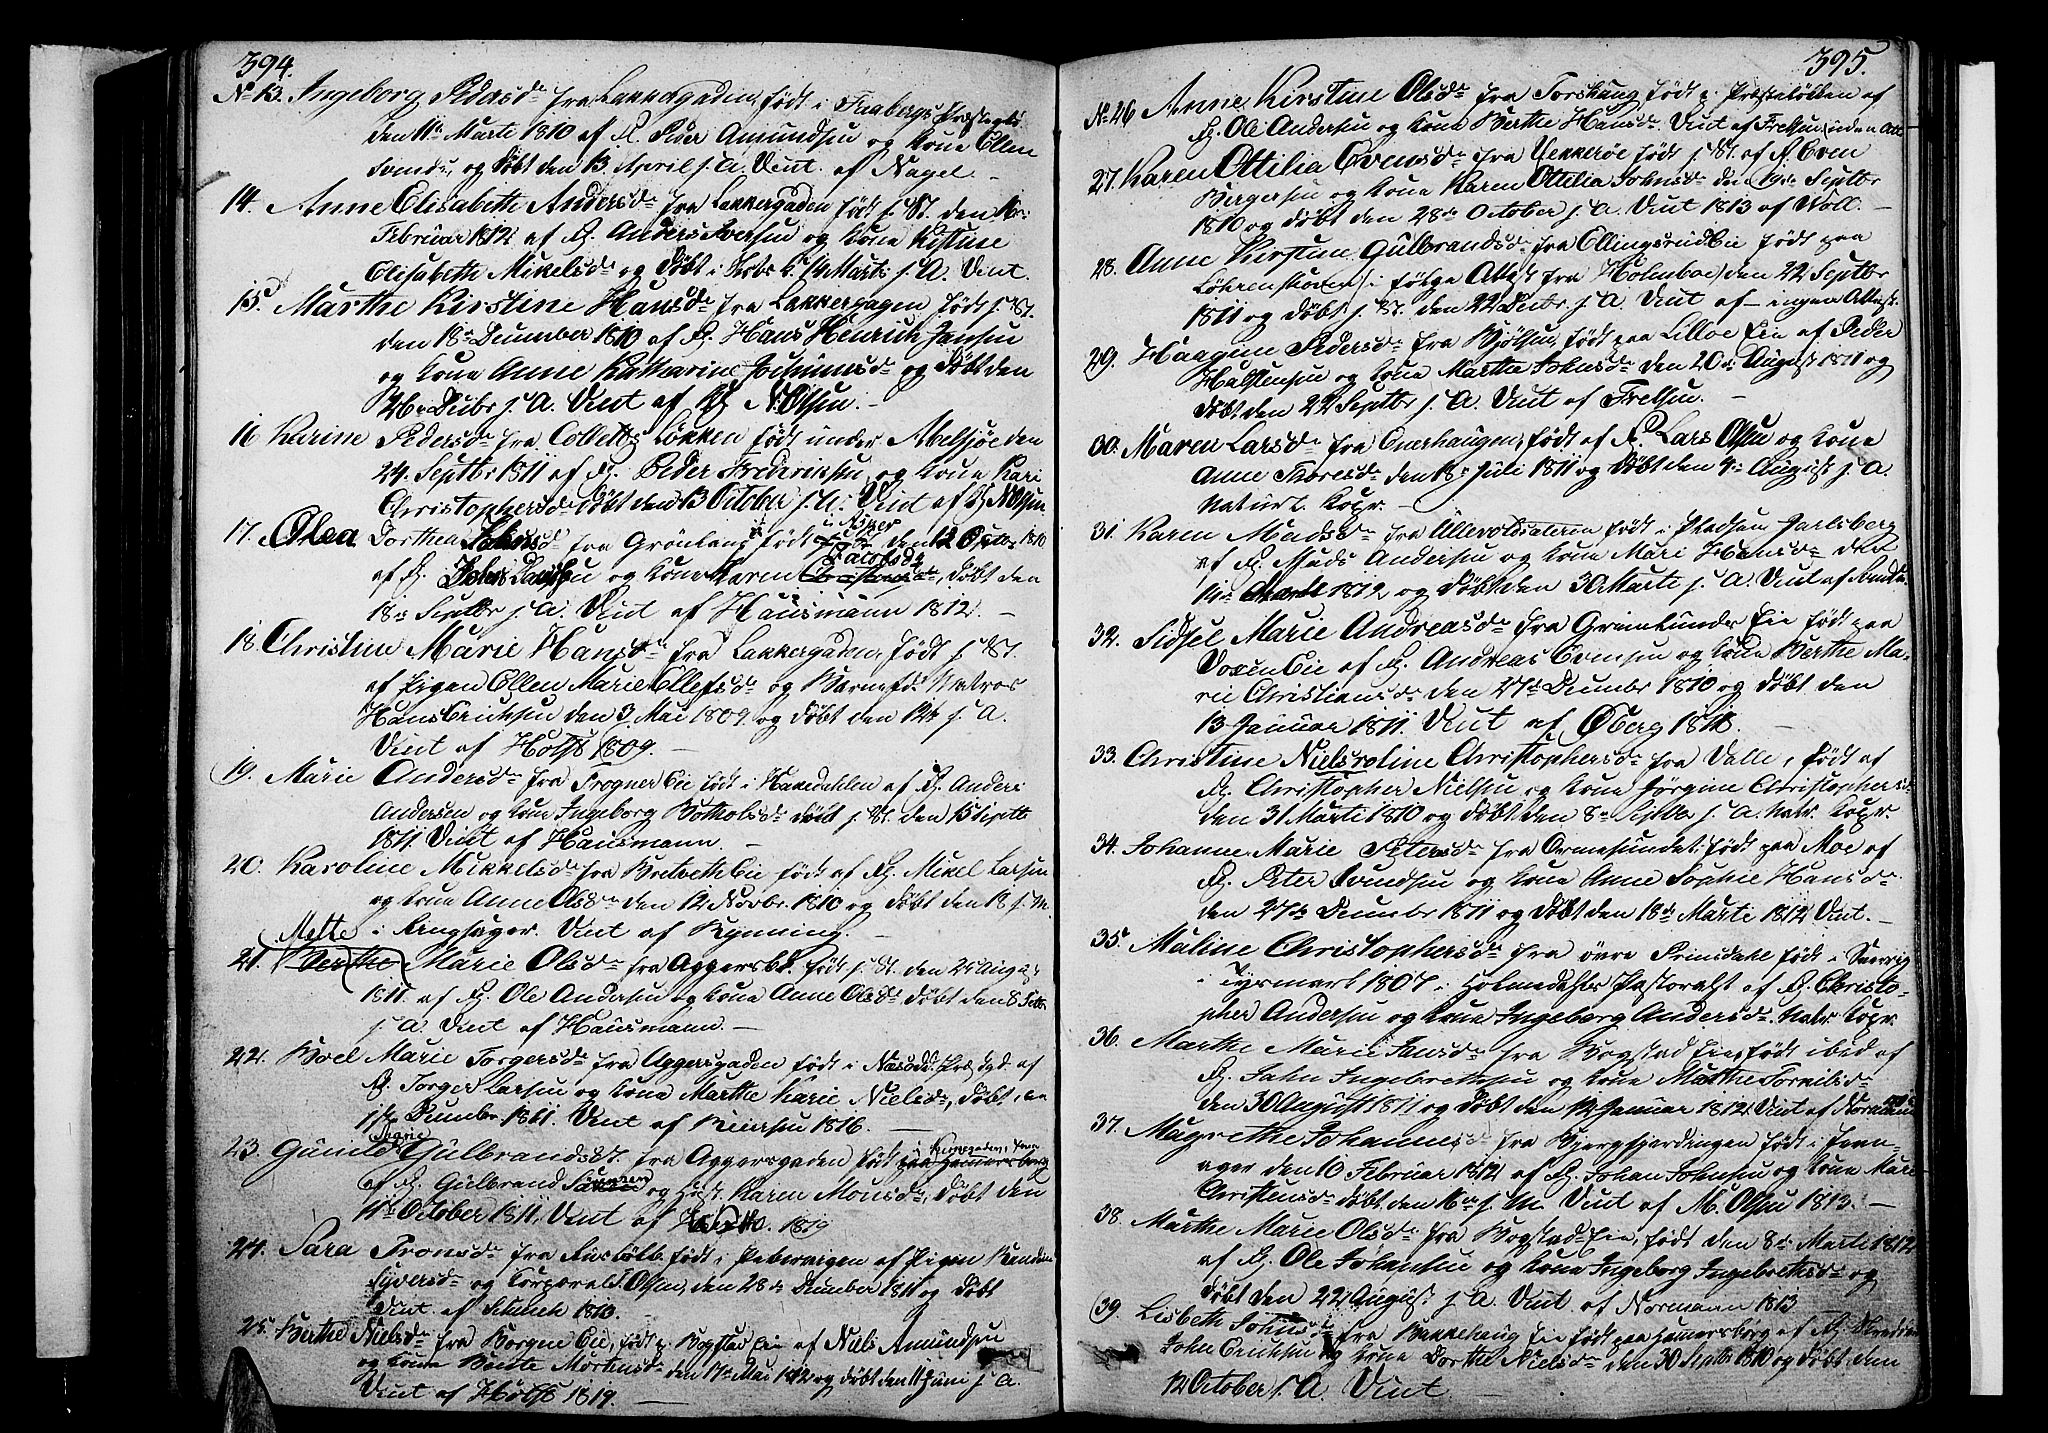 394.
No 13. Ingeborg Pedersdr fra Lakkergaden, født i Faabergs Præstegl.
den 11te Marti 1810 af F. Peder Amundsen og Kone Ellen
Svendsdr, og døbt den 13 April s. A. Vint. af Nagel. –
14. Anne Elisabeth Andersdr fra Lakkergaden født s. St. den
Februar 1812 af F. Anders Iversen og Kone Kistine
Elisabeth Mikelsdr og døbt i Marts s. A. Vint.
15. Marthe Kirstine Hansdr fra Lakkergagen født s. St.
den 18de December 1810 af F. Hans Henrich Jansen
og Kone Anne Katharine og døbt den
26de Decbr s. A. Vint af N. Olsen. –
16 Karine Pedersdr fra Colletts Løkken født under Abelsøe den
24. Septbr 1811 af F. Peder Frederiksen og Kone Kari
Christophersdr døbt den 13 October s. A. Vint af N. Olsen
i Ager
17. Olea Dorthea Johnsdr fra Grønland født den 12 1810
af F. John og Kone Karen døbt den
18de Septbr s. A. Vint af Hausmann 1812. –
18. Christine Marie Hansdr fra Lakkergaden, født s. St.
af Pigen Ellen Marie Ellefsdr og Barnefdr Matros
Hans Erichsen den 3. Mai 1809. og døbt den 12te s. A.
Vint af Holst 1809. –
19. Marie Andersdr fra Frogner Eie født i Hakedahlen af F. Anders
Andersen og Kone Ingeborg Botholsdr døbt s. St. den 15 Septbr
1811. Vint af Hausmann. –
20. Karoline Mikkelsdr fra Bretveth Eie født af F. Mikel Larsen
og Kone Anne Olsdr den 12 Novbr. 1810 og døbt den 18 s. M.
i Ringsager. Vint af Rynning. –
Mette
21. Berthe Marie Olsdr fra Aggersbk. født s. St. den 24 Aug
1811. af F. Ole Andersen og Kone Anne Olsdr døbt den 8 Septbr
s. A. Vint af Hausmann. –
22. Boel Marie Torgersdr fra Aggersgaden født i Næsodd. Præstgd. af
F. Torger Larsen og Kone Marthe Karie Nielsdr, døbt
1ste December 1811. Vint af Keiersen 1816. –
Marie
23. Gunild Gulbrandsdr. fra Aggersgaden født
af F. Gulbrand og Hust. Karen Monsdr, døbt den
11te October 1811. Vint af 1819
24. Sara Tronsdr fra født i Pebervigen af Pigen
Syversdr og Corporal T. Olsen, den 28de December 1811 og døbt
Vint af 1813.
25. Berthe Nielsdr fra Borgne Eie, født p. Bogstad Eie af Niels Amundsen
og Kone Beate Mortensdr den 17de Mai 1812 og døbt den 11 Juni s. A.
Vint af Holst 1819. –
395.
No 26 Anne Kirstine Olsdr fra Torshaug født p. Præsteløkken af
F. Ole Andersen og Kone Berthe Hansdr. Vint af Fretsen uden Att
27. Karen Ottilia Evensdr fra Uekkerøe født s. St. af F. Even
Bergersen og Kone Karen Ottilia Johnsdr den 19de Septbr
1810 og døbt den 28de October s. A. Vint 1813 af Woll. –
28. Anne Kirstine Gulbrandsdr fra Ellingsrud Eie født paa
Løhrenskoug i følge Attest fra Holmboe den 22 Septbr
1811 og døbt s. St. den 22 Decbr. s. A. Vint af – ingen Attest.
29. Haagine Pedersdr fra Bjølsen, født paa Lilloe Eie af Peder
Halstensen og Kone Marthe Johnsdr den 20de August 1811 og
døbt den 22 Septbr s. A. Vint af Fretsen. –
30. Maren Larsdr fra Enerhaugen, født af F. Lars Olsen og Kone
Anne Thoresdr den 18de Juli 1811 og døbt den 4de August s. A.
Naturl. Kopr. –
31. Karen Madsdr fra Ullevoldsateren født i Pladsen Jarlsberg
af F. Mads Andersen og Kone Mari Hansdr den
11te Marti 1812 og døbt den 30 Marti s. A. Vint af
32. Sidsel Marie Andreasdr fra Grimelunds Eie født paa
Voxen Eie af F. Andreas Evensen og Kone Berthe Ma-
rie Christiansdr den 27de Decembr 1810 og døbt den
13 Januar 1811. Vint af Øberg 1818. –
33. Christine Nielsroline Christophersdr fra Valle, født af
F. Christopher Nielsen og Kone Jørgine Christophersdr
den 31 Marti 1810 og døbt den 8de Septbr s. A. Natr. Kopr.
34. Johanne Marie Petersdr fra Ormesundet født paa Moe af
F. Peter Svendsen og Kone Anne Sophie Hansdr
den 27de Decembr 1811 og døbt den 18de Marti 1812 Vint. –
35. Maline Christophersdr fra øvre Prinsdale født i Sverrig
i Tysmark 1807 i Holmedahls Pastoratst af F. Christo-
pher Andersen og Kone Ingeborg Andersdr. Natr. Kopr.
36. Marthe Marie Jansdr fra Bogstad Eie, født ibid af
F. Jahn Ingebrethsen og Kone Marthe Tornilsdr
den 30 August 1811 og døbt den 12 Januar 1812. Vint af Normann
37. Magrethe Johannesdr fra Bjergfjerdingen født i
ager den 10 Februar 1812 af F. Johan Johnsen og Kone Mari
Christensdr døbt den 16de s. M. Vint af M. Olsen 1813. –
38. Marthe Marie Olsdr fra Bogstad Eie, født den 8de Marti 1812
af F. Ole Johansen og Kone Ingeborg Ingebrethsdr og
døbt den 22 August s. A. Vint af Normann 1813
39. Lisbeth Johnsdr fra Bakkehaug Eie født paa Hammersborg af F.
John Erichsen og Kone Dorthe Nielsdr den 30 Septbr 1810 og døbt den
12 October s. A. Vint –